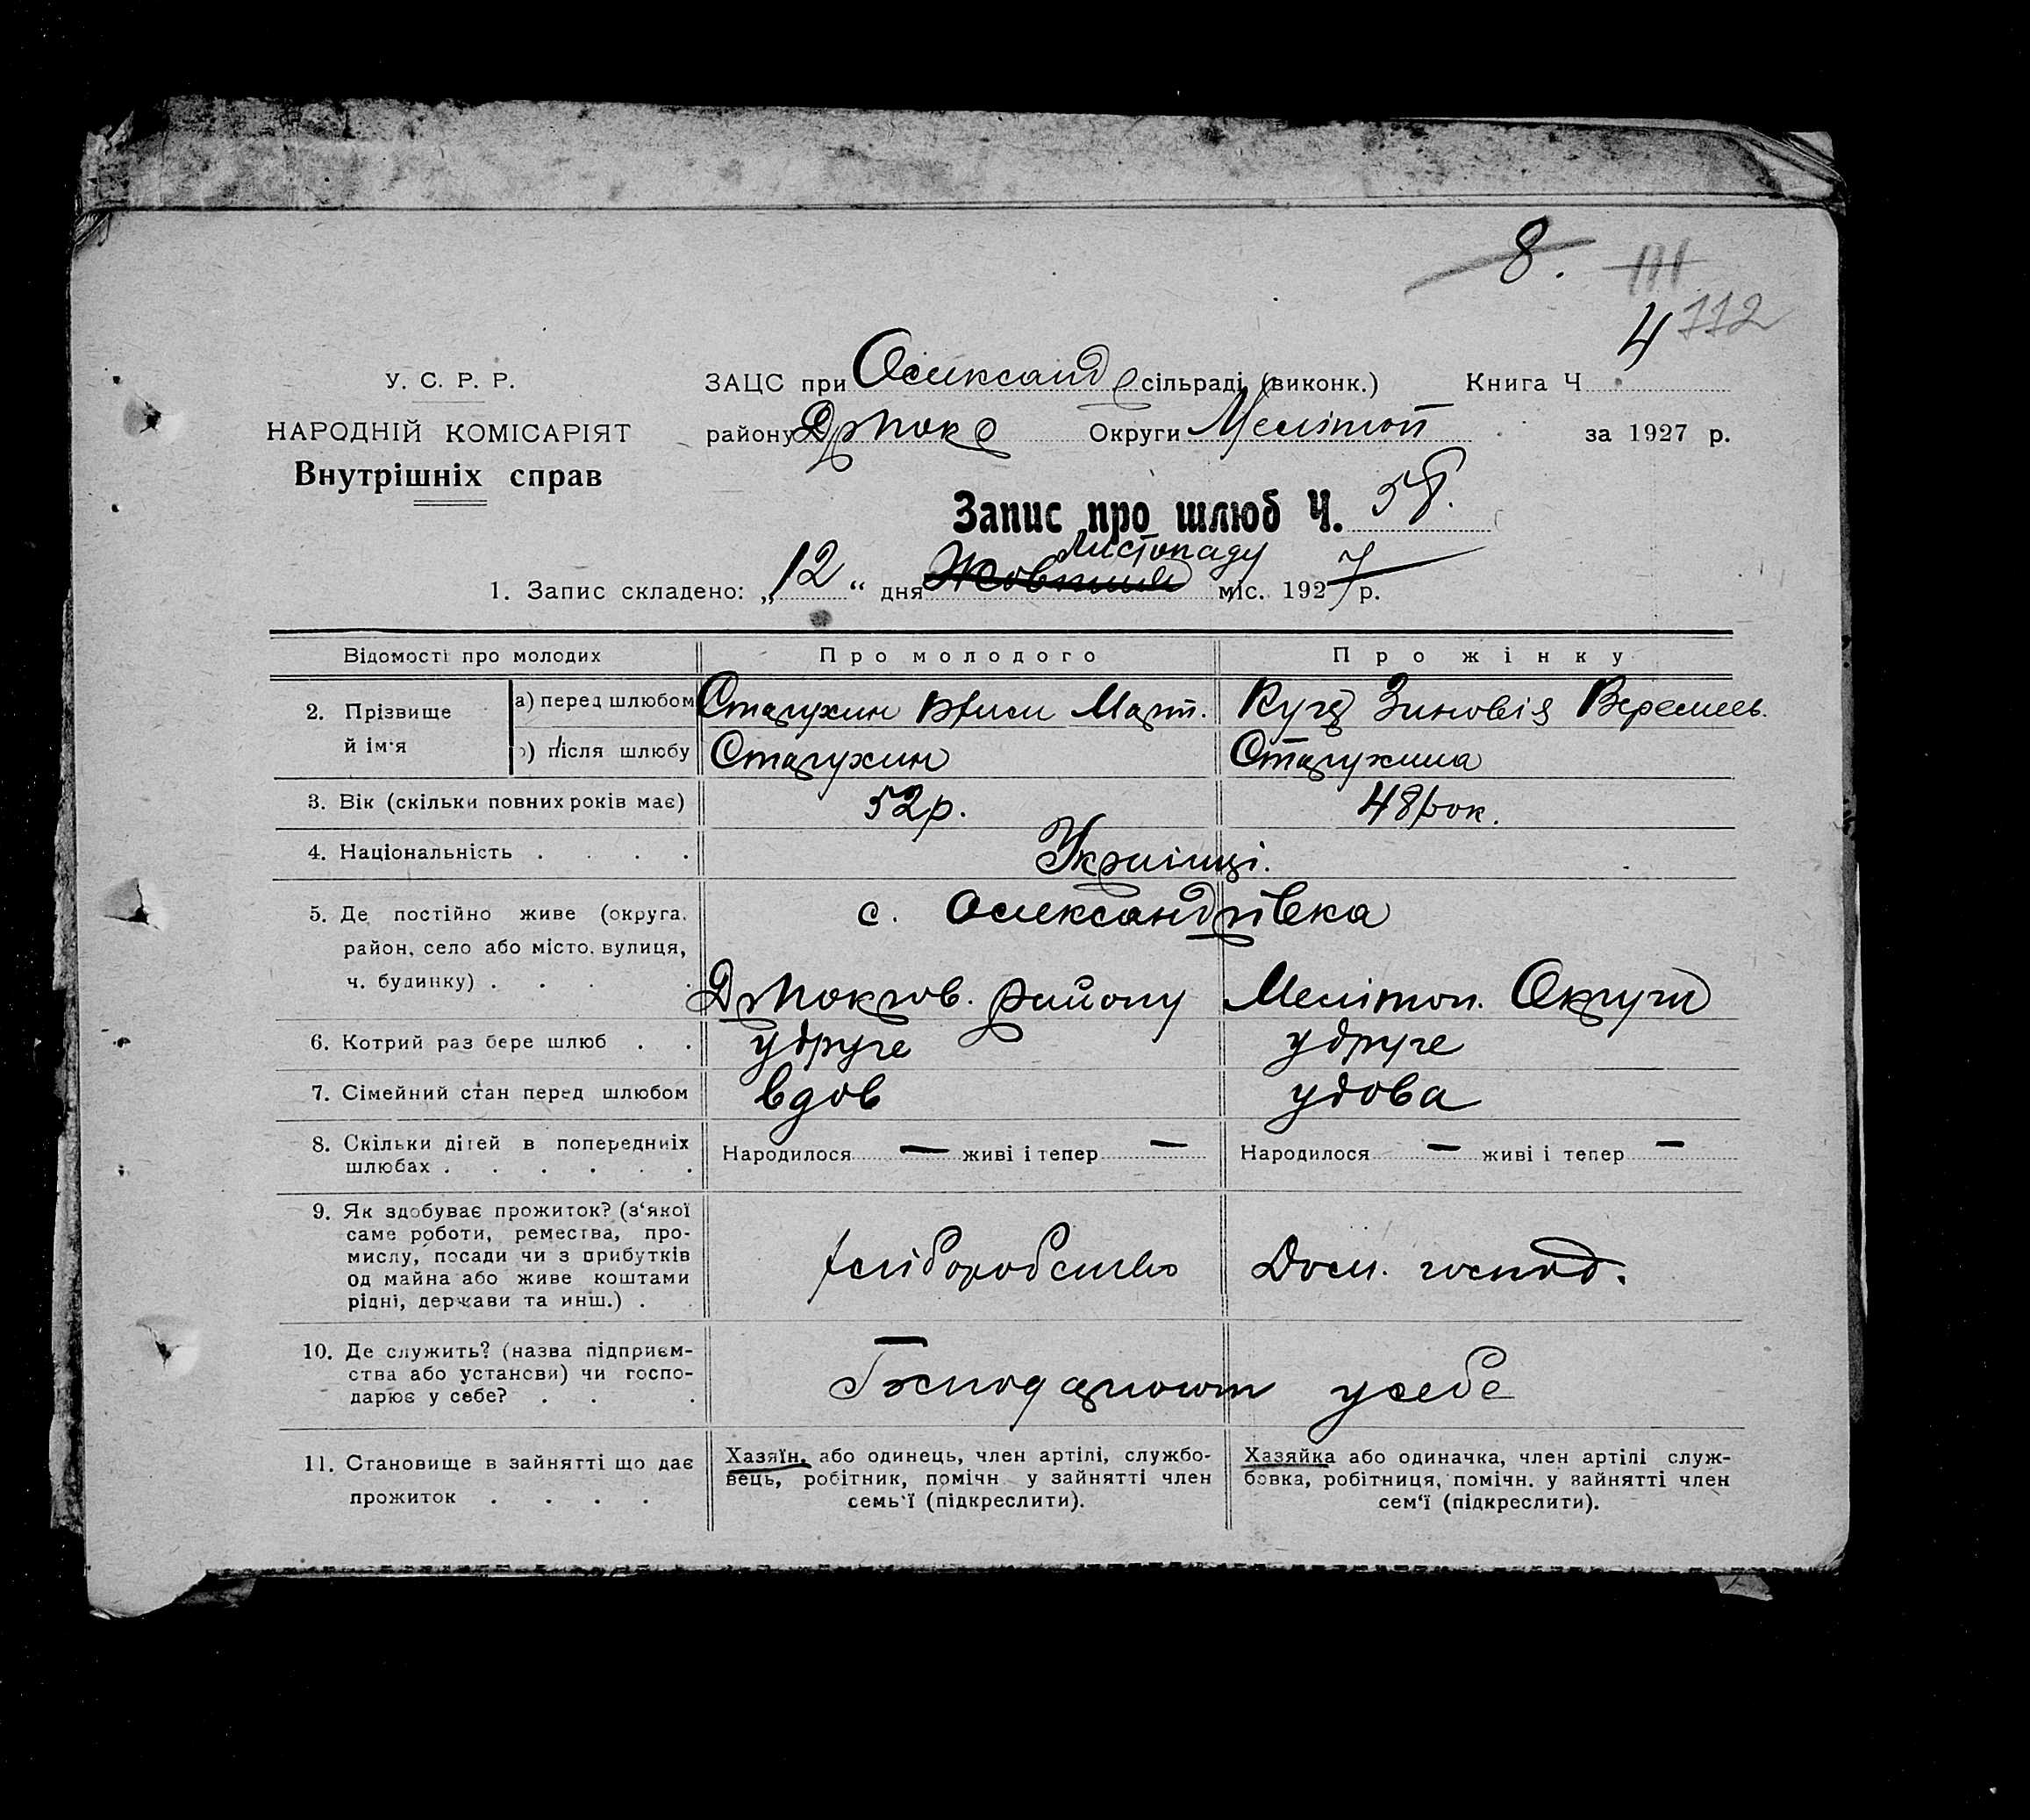 8.
111
4 112
У. С. Р. Р.
НАРОДНІЙ КОМІСАРІЯТ
Внутрішніх справ
ЗАЦС при Олександр сільраді (виконк.) Книга Ч
району Округи Мелітоп за 1927 р.
Запис про шлюб Ч. 58.
1. Запис складено: „12“ дня Жовтня Листопаду міс. 1927 р.
Відомості про молодих Про молодого Про жінку
2. Прізвище й ім'я
а) перед шлюбом Март. Зиновія
б) після шлюбу
3. Вік (скільки повних років має) 52 р. 48 рок.
4. Національність . . . . Українці.
5. Де постійно живе (округа, с. Олександрівка
район, село або місто, вулиця,
ч. будинку) . . . району Мелітоп. Округи
6. Котрий раз бере шлюб . . удруге удруге
7. Сімейний стан перед шлюбом вдов удова
8. Скільки дітей в попередніх шлюбах . . . . . .
Народилося — живі і тепер — Народилося — живі і тепер —
9. Як здобуває прожиток? (з'якої
саме роботи, ремества, про-
мислу, посади чи з прибутків
од майна або живе коштами
рідні, держави та инш.) . .
хліборобство Дом. господ.
10. Де служить? (назва підприєм-
ства або установи) чи госпо-
дарює у себе? . . .
Господарюют у себе
11. Становище в зайнятті що дає
прожиток . . . .
Хазяїн, або одинець, член артілі, службо-
вець, робітник, помічн. у зайнятті член
семь'ї (підкреслити).
Хазяйка або одиначка, член артілі служ-
бовка, робітниця, помічн. у зайнятті член
сем'ї (підкреслити).